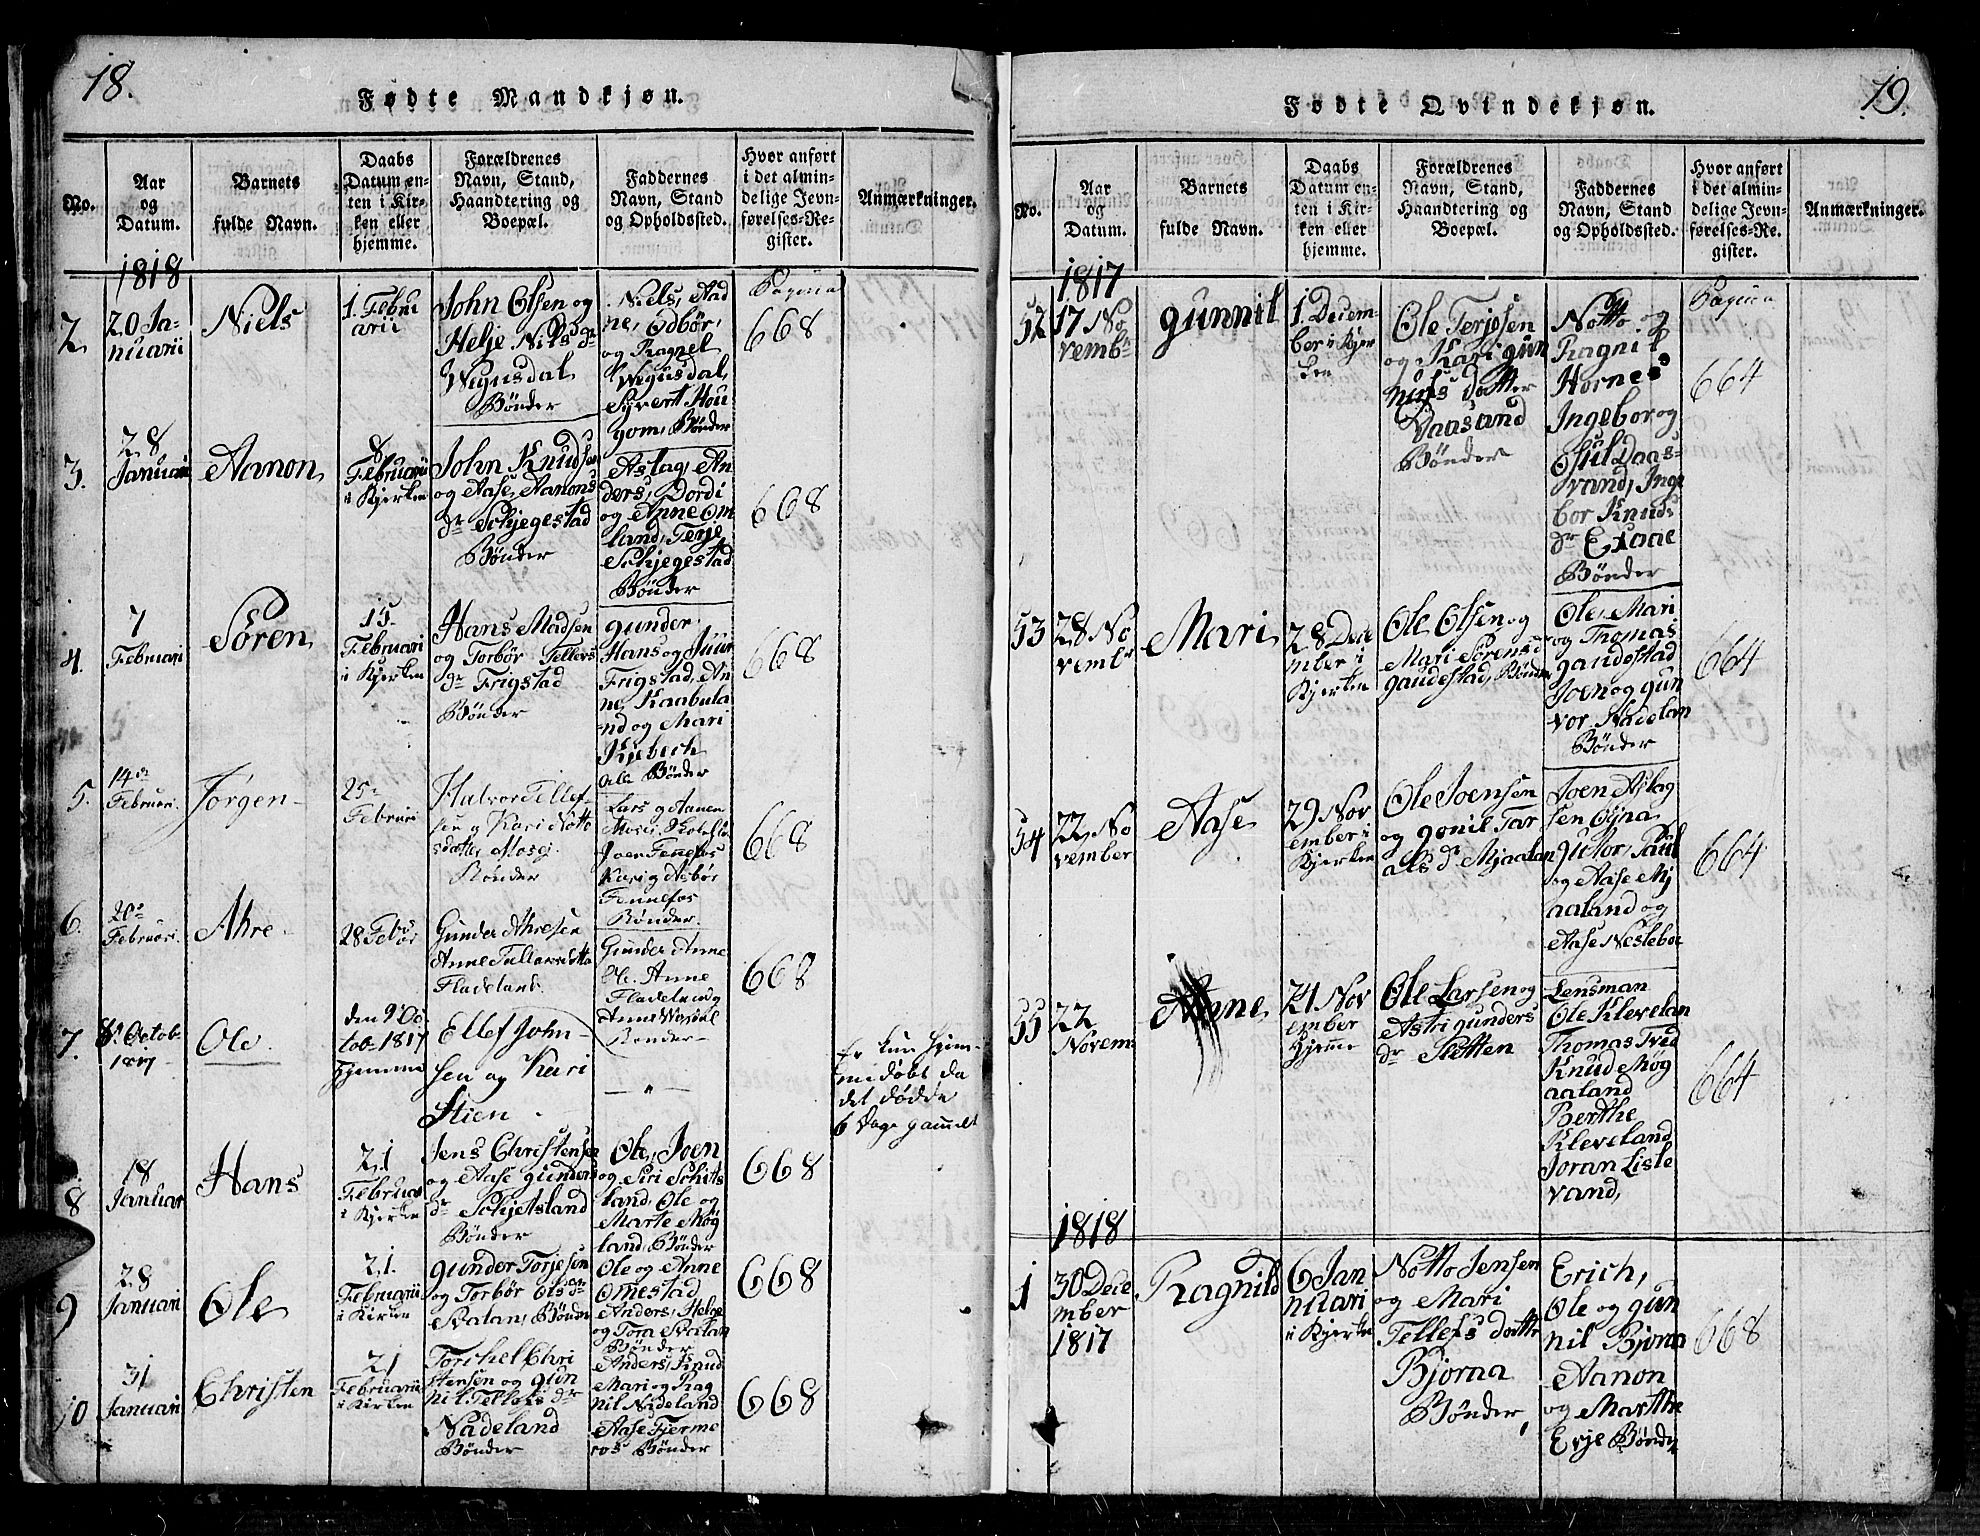 18.
Fødte Mandkjøn.
No.
Aar
og
Datum.
Barnets
fulde Navn.
Daabs
Datum en-
ten i Kir-
ken eller
hjemme.
Forældrenes
Navn, Stand,
Haandtering og
Boepæl.
Faddernes
Navn, Stand
og Opholdssted.
Hvor anført
i det almin-
delige Jevn-
førelses-Re-
gister.
Anmærkninger.
1818
2.
20 Ja-
nuarii
Niels
1. Febru
arii
John Olsen og
Helje Nils dr
Wegusdal
Bønder
Niels, Aad
ne, Odbør,
og Ragnel
Wegusdal,
Syvert Hou
gom, Bønder
Pagina
668
3.
28
Januarii
Aanon
8
Februarii
i Kjerken
John Knudsen
og Aase Aanons
dr Schjegestad
Bønder
Aslag, An
ders, Dordi
og Anne Om
land, Terje
Schjegestad
Bønder
668
4.
7
Februari
Sören
15.
Februari
i Kjerken
Hans Madsen
og Torbör Tellefs
dr Frigstad
Bønder
gunder
Hans og Juur
Frigstad, An
ne Kaabula
nd og Mari
Kjebech
alle Bønder
668
5.
14de
Februari.
Jörgen
25
Februari
Halvor Tellef-
sen og Kari Notto
sdatter Mosej.
Bönder
Lars og Aanen
Mosei,
Joen Fennefos
Kari og Asbör
Fennefos
Bönder.
668
6.
20de
Februari.
Ahre
28 Febr
Gunder Ahresen
Anne Tallaksdatter
Fladeland.
Gunder Anne
Ole. Anne
Fladeland og
Anne
Bönder
668
7.
8de Octob.
1817
Ole
den 9de Oc
tobr 1817
hjemme
Ellef John-
sen og Kari
Stien
"
Er kun hjem-
medøbt da
det dødde
6 Dage gammelt
8
18
Januar
Hans
21
Februar
i Kjerken
Jens Christensen
og Aase gunders
dr Schjetsland
Bønder
Ole, Joen
og Siri Schits
land, Ole og
Marte Møg
land, Bønder
668
9
28
Januari
Ole
21.
Februarii
i Kirken
gunder Torjesen
og Torbør Ols dr
Svalan, Bønder
Ole og Anne
Omestad
Anders, Helge
og Tora Svalan
Bønder
668
10
31
Januari
Christen
21
Februarii
i Kirken
Torchel Chri
stensen og gun
nil Tellefs dr
Nadeland
Bønder
Anders, Knud
Mari og Rag
nil Nadeland
Aase Fjerme
ros Bønder
668
19.
Fødte Qvindekjøn.
No.
Aar
og
Datum.
Barnets
fulde Navn.
Daabs
Datum en-
ten i Kir-
ken eller
hjemme.
Forældrenes
Navn, Stand,
Haandtering og
Boepæl.
Faddernes
Navn, Stand
og Opholdssted.
Hvor anført
i det almin-
delige Jevn-
førelses-Re-
gister.
Anmærkninger.
1817
52
17 No
vembr
gunnil
1. Decem-
ber i Kjer
ken
Ole Terjesen
og Kari gun
nufs datter
Daasvand
Bønder
Notto og
Ragnil
Hornes
Ingebor og
Osul Daas-
vand, Inge
bor Knuds
dr Exaae
Bønder
Pagina
664
53
28 No
vembr
Mari
28 Dece
mber i
Kjerken
Ole Olsen og
Mari Sörens d
gaudestad, Bønder
Ole, Mari
og Thomas
gaudestad
Joen og gun
vor Nadelan
Bønder
664
54
22 No
vember
Aase
29 Nov
ember i
Kjerken
Ole Joensen
og gonil Tar
alsdr Mjaalan
Joen Aslag
sen Ogna
guttor, Paul
og Aase Mj
aaland og
Aase Nesleboe
664
55
22
Novem
Anne
24 Nov
ember
hjemme
Ole Larsen og
Astri gunders
dr Sletten
Lensman
Ole Klevelan
Thomas Tved
Knud Møg
aaland
Berthe
Kleveland
Joran Lisle
vand,
664
1818
1
30 Dece
mber
1817
Ragnild
6 Jan
nuari
i Kjerken
Notto Jensen
og Mari
Tellefs datter
Bjoraa
Bønder
Erich,
Ole og gun
nil Bjoraa
Aanon
og Marthe
Evje Bønder
668